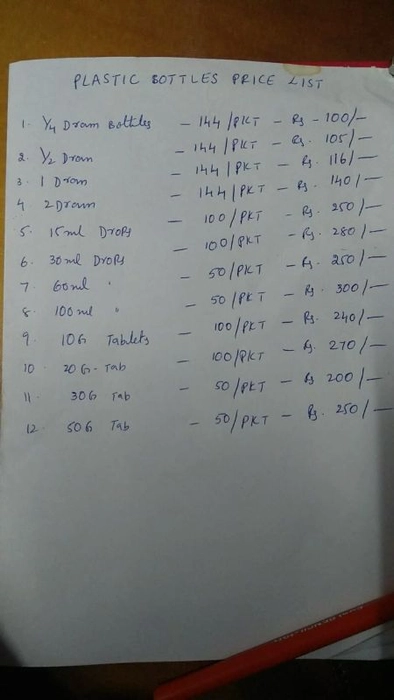 PLASTIC BOTTLES PRICE LIST
1. 1/4 Dram Bottles - 144/PKT - Rs - 100/-
2. 1/2 Dram - 144/PKT - Rs. 105/-
3. 1 Dram - 144/PKT - Rs. 116/-
4 2 Dram - 144/PKT - Rs. 140/-
5. 15ml Drops - 100/PKT - Rs. 250/-
6. 30ml Drops - 100/PKT - Rs. 280/-
7 60ml " - 50/PKT - Rs. 250/-
8. 100ml " - 50/PKT - Rs. 300/-
9. 10G Tablets - 100/PKT - Rs. 240/-
10 20G-Tab - 100/PKT - Rs. 270/-
11. 30G Tab - 50/PKT - Rs 200/-
12. 50G Tab - 50/PKT - Rs. 250/-